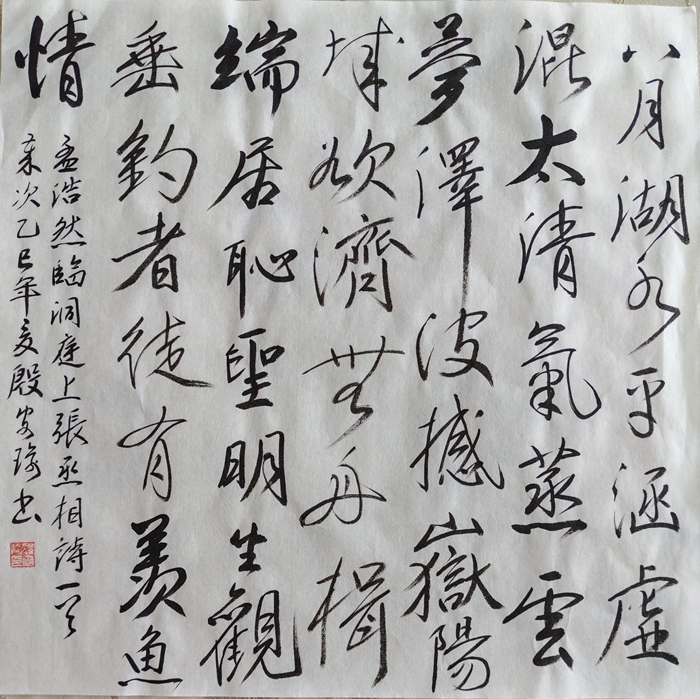 八月湖水平涵虛
混太清氣蒸雲
夢澤波撼嶽陽
城欲濟無舟楫
端居恥聖明坐觀
垂釣者徒有羨魚
情
孟浩然臨洞庭上張丞相詩一首
歲次乙巳年夏殷安書